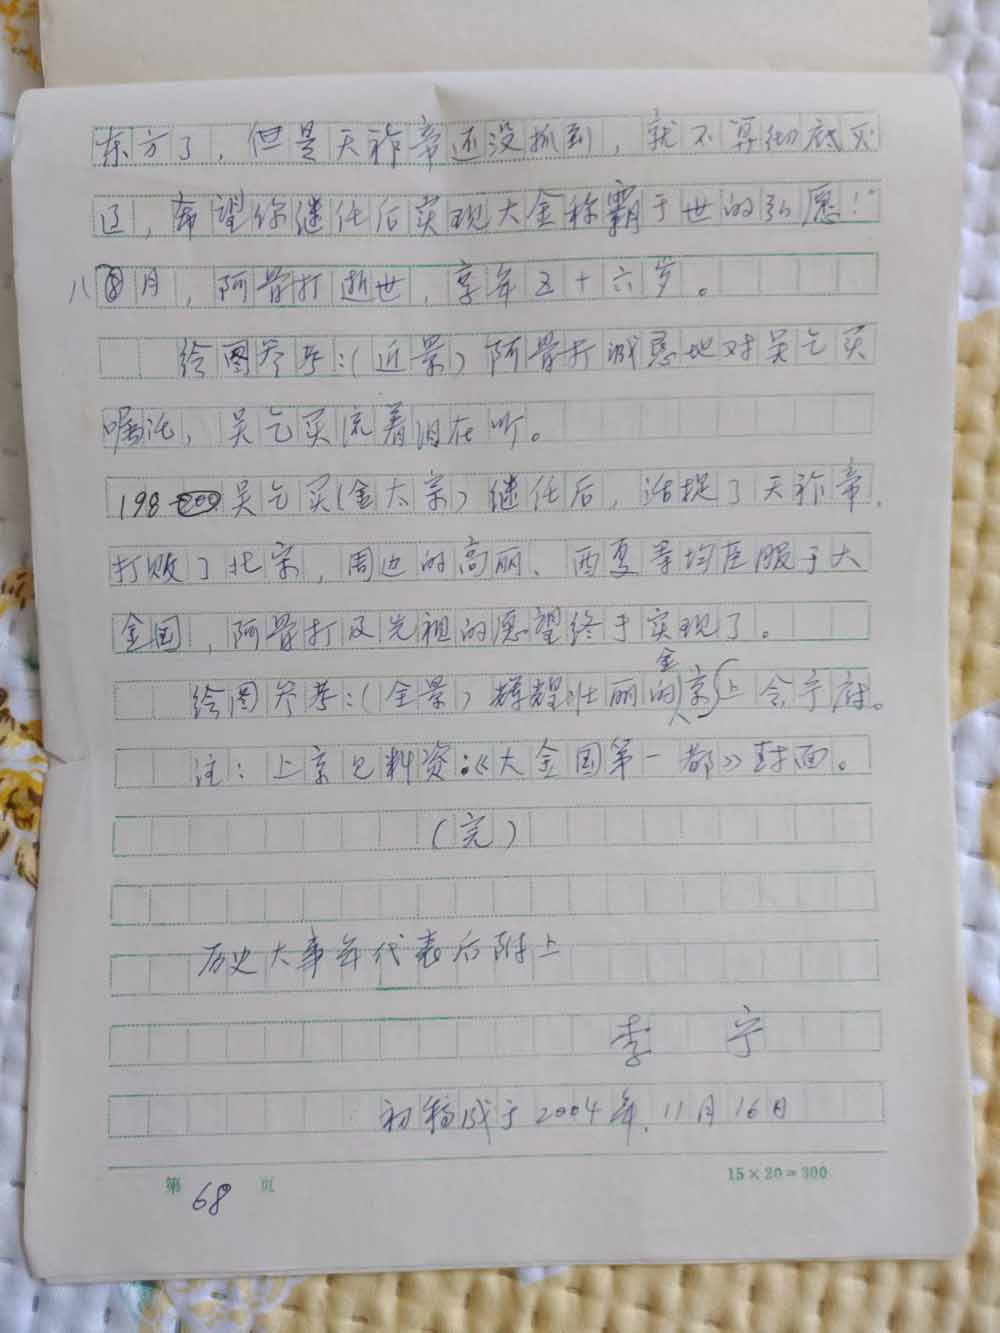 东方了，但是天祚帝还没抓到，就不算彻底灭
辽，希望你继任后实现大金称霸于世的弘愿！”
八月，阿骨打逝世，享年五十六岁。
绘图参考：（近景）阿骨打诚恳地对吴乞买
嘱讬，吴乞买流着泪在听。
198 吴乞买（金太宗）继任后，活捉了天祚帝，
打败了北宋，周边的高丽、西夏等均臣服于大
金国，阿骨打及先祖的愿望终于实现了。
绘图参考：（全景）辉煌壮丽的金京上会宁府。
注：上京已料资：《大金国第一都》封面。
（完）
历史大事年代表后附上
李 宁
初稿成于2004年.11月16日
第 68 页 15×20=300